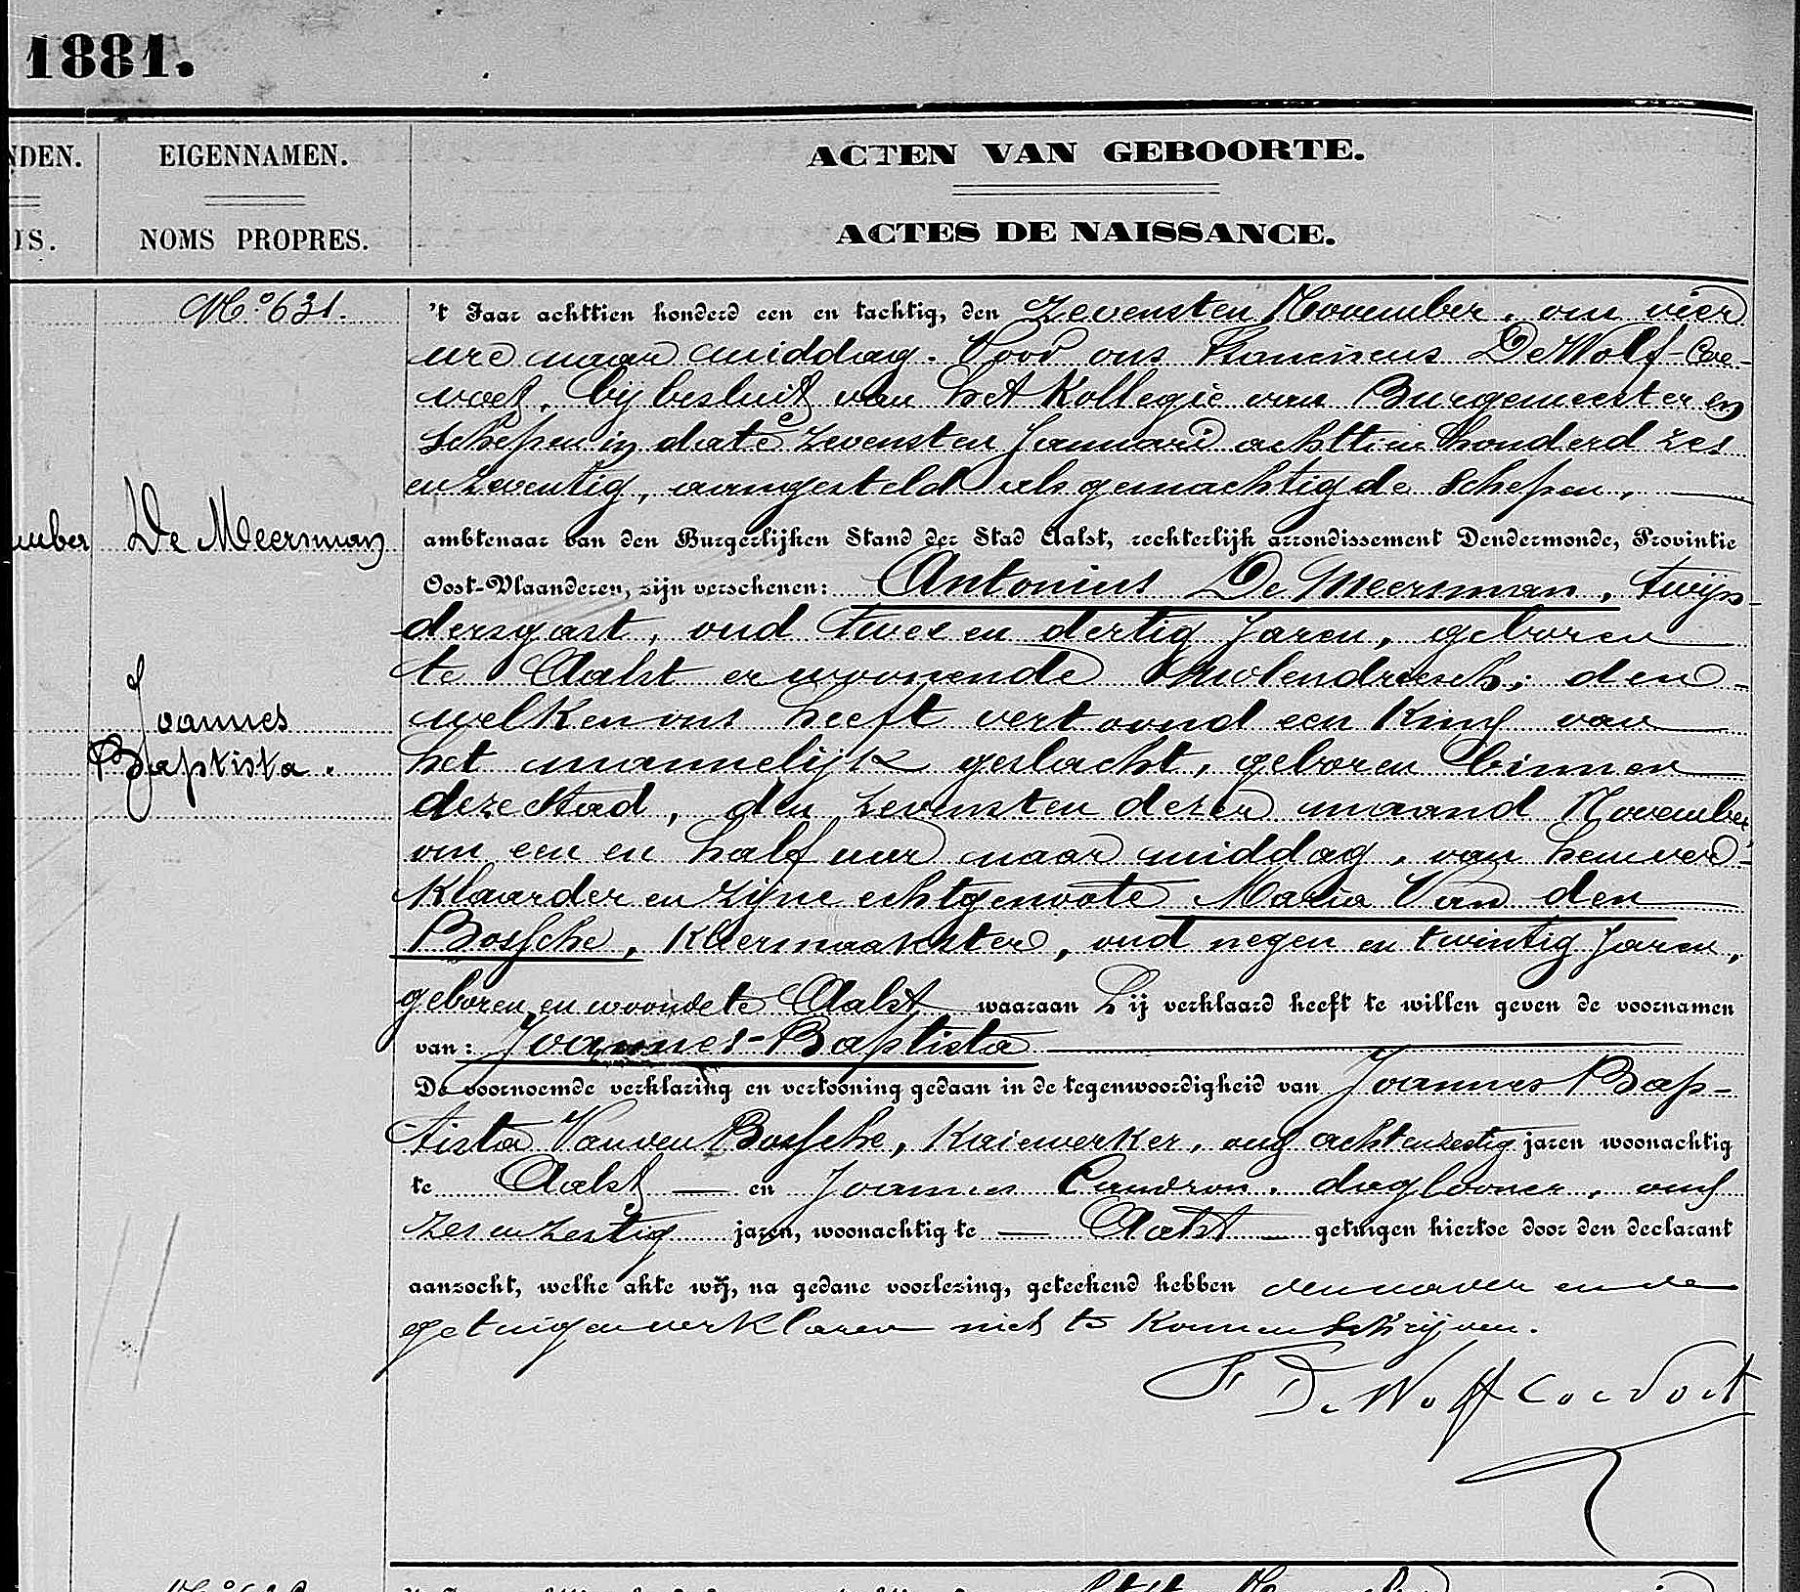 1881.
NDEN. EIGENNAMEN. ACTEN VAN GEBOORTE.
IS. NOMS PROPRES. ACTES DE NAISSANCE.
N.º 631.
't Jaar achttien honderd een en tachtig, den zevensten November, om vier
ure naar middag. Voor ons Franciscus De Wolf-Coe-
voet, bij besluit van het Kollegie van Burgemeester en
Schepen in date zevensten Januari achttien honderd zes
en zeventig, aangesteld als gemachtigde Schepen,
ember De Meersman
ambtenaar van den Burgerlijken Stand der Stad Aalst, rechterlijk arrondissement Dendermonde, Provintie
Oost-Vlaanderen, zijn verschenen: Antonius De Meersman, twijn-
dersgast, oud twee en dertig jaren, geboren
te Aalst er woonende Molendriesch; den
welken ons heeft vertoond een Kind van
Joannes
Baptista.
het mannelijk geslacht, geboren binnen
deze stad, den zevensten dezer maand November
om een en half uur naar middag, van hem ver-
klaarder en zijne echtgenoote Maria Van den
Bossche, Kleermaakster, oud negen en twintig jaren,
geboren en woonde te Aalst waaraan hij verklaard heeft te willen geven de voornamen
van: Joannes-Baptista
De voornoemde verklaring en vertooning gedaan in de tegenwoordigheid van Joannes Bap-
tista Van den Bossche, Kaiewerker, oud acht en zestig jaren woonachtig
te Aalst — en Joannes Caudron, daglooner, oud
zes en zestig jaren, woonachtig te — Aalst — getuigen hiertoe door den declarant
aanzocht, welke akte wij, na gedane voorlezing, geteekend hebben den vader en de
getuigen verklaren niet te konnen schrijven.
F De Wolf Coevoet